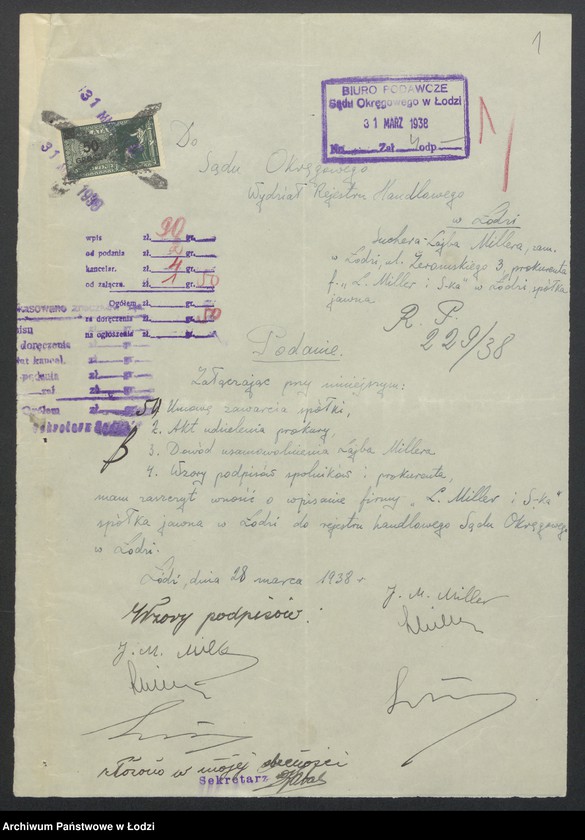 1
BIURO PODAWCZE
Sądu Okręgowego w Łodzi
31 MARZ 1938
Nr. Zał. 4 odp.
31
50
31
1938
Do
Sądu Okręgowego
Wydział Rejestru Handlowego
w Łodzi
Suchera-Lajba Millera, zam.
w Łodzi, ul. Żeromskiego 3, prokurenta
f. „L. Miller i S-ka" w Łodzi spółka
jawna
R. P.
229/38
wpis zł. 90 gr.
od podania zł. 2 gr.
kancelar. zł. 4 gr.
od załącz. zł. 1 gr. 50
Ogółem zł. gr.
za doręczenia zł. gr. 50
na ogłoszenie zł. gr.
Skasowano
doręczenia zł. gr.
kancel. zł. gr.
podania zł. gr.
Ogółem zł. gr.
Podanie.
Załączając przy niniejszym:
1. Umowę zawarcia spółki,
2. Akt udzielenia prokury,
3. Dowód usamowolnienia Lajba Millera
4. Wzory podpisów spólników i prokurenta,
mam zaszczyt wnosić o wpisanie firmy „L. Miller i S-ka"
spółka jawna w Łodzi do rejestru handlowego Sądu Okręgowego
w Łodzi.
Łódź, dnia 28 marca 1938 r
J. M. Miller
LMiller
Wzory podpisów:
J. M. Miller
LMiller
złożono w mojej obecności
Sekretarz
Archiwum Państwowe w Łodzi